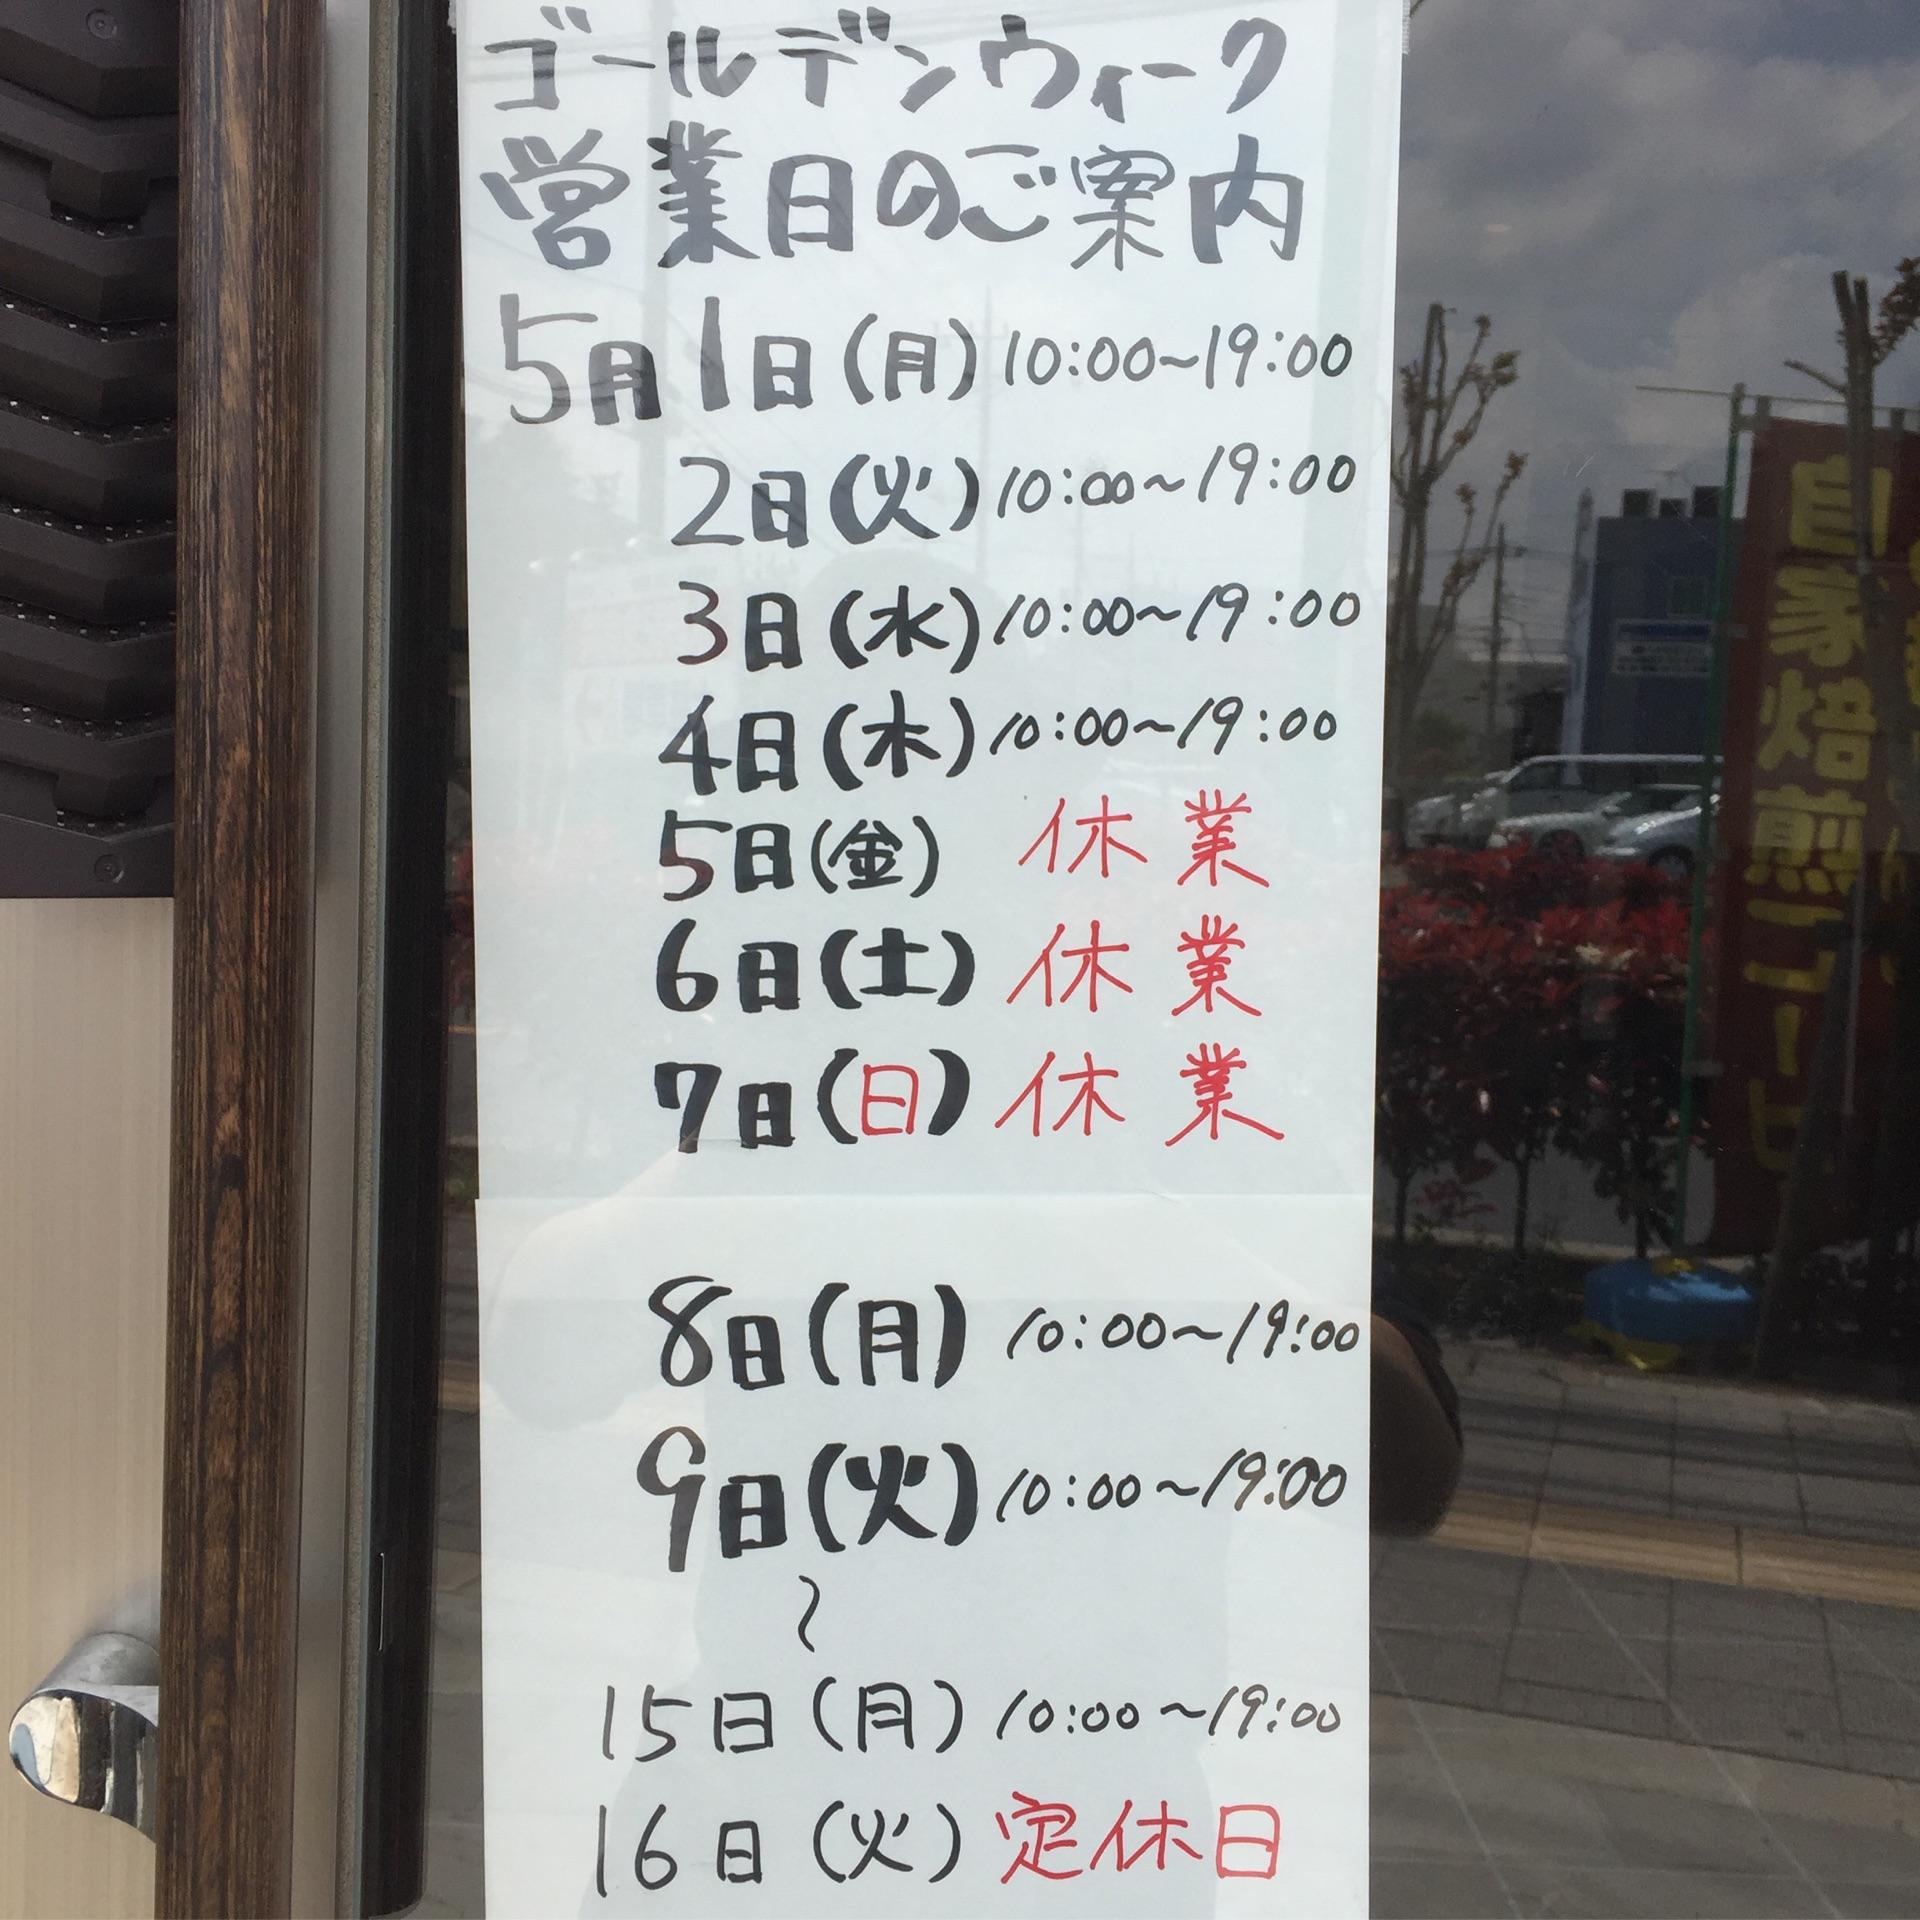 ゴールデンウィーク
営業日のご案内
5月1日(月)10:00~19:00
2日(火)10:00~19:00
3日(水)10:00~19:00
4日(木)10:00~19:00
5日(金) 休業
6日(土) 休業
7日(日) 休業
8日(月) 10:00~19:00
9日(火) 10:00~19:00
~
15日(月) 10:00~19:00
16日(火) 定休日
自家焙煎コーヒー